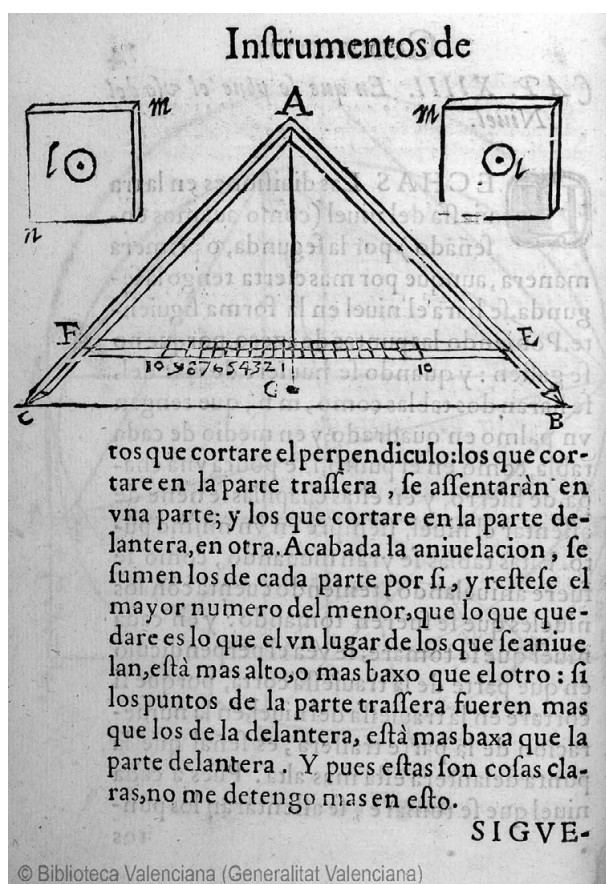 Inſtrumentos de
A
m
m
l
l
n
F
E
10 9 8 7 6 5 4 3 2 1
10
G
C
B
tos que cortare el perpendiculo:los que cor-
tare en la parte traſſera , ſe aſſentaràn en
vna parte; y los que cortare en la parte de-
lantera,en otra.Acabada la aniuelacion , ſe
ſumen los de cada parte por ſi, y reſteſe el
mayor numero del menor,que lo que que-
dare es lo que el vn lugar de los que ſe aniue
lan,eſtà mas alto,o mas baxo que el otro : ſi
los puntos de la parte traſſera fueren mas
que los de la delantera, eſtà mas baxa que la
parte delantera . Y pues eſtas ſon coſas cla-
ras,no me detengo mas en eſto.
SIGVE-
© Biblioteca Valenciana (Generalitat Valenciana)